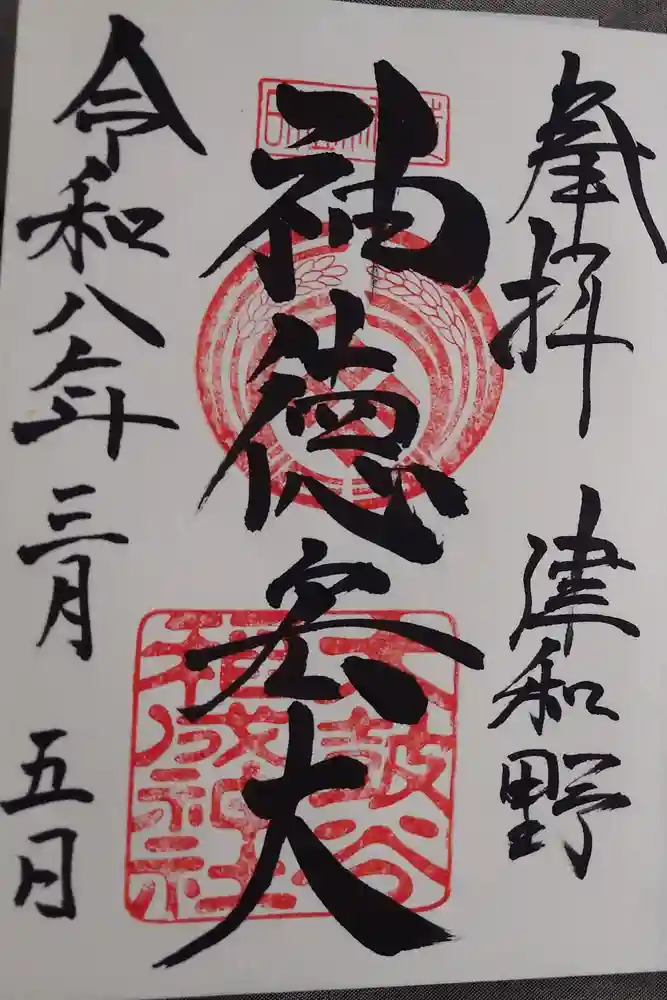 奉拝 津和野
神徳宏大
太皷谷
稲成神社
令和八年 三月 五日